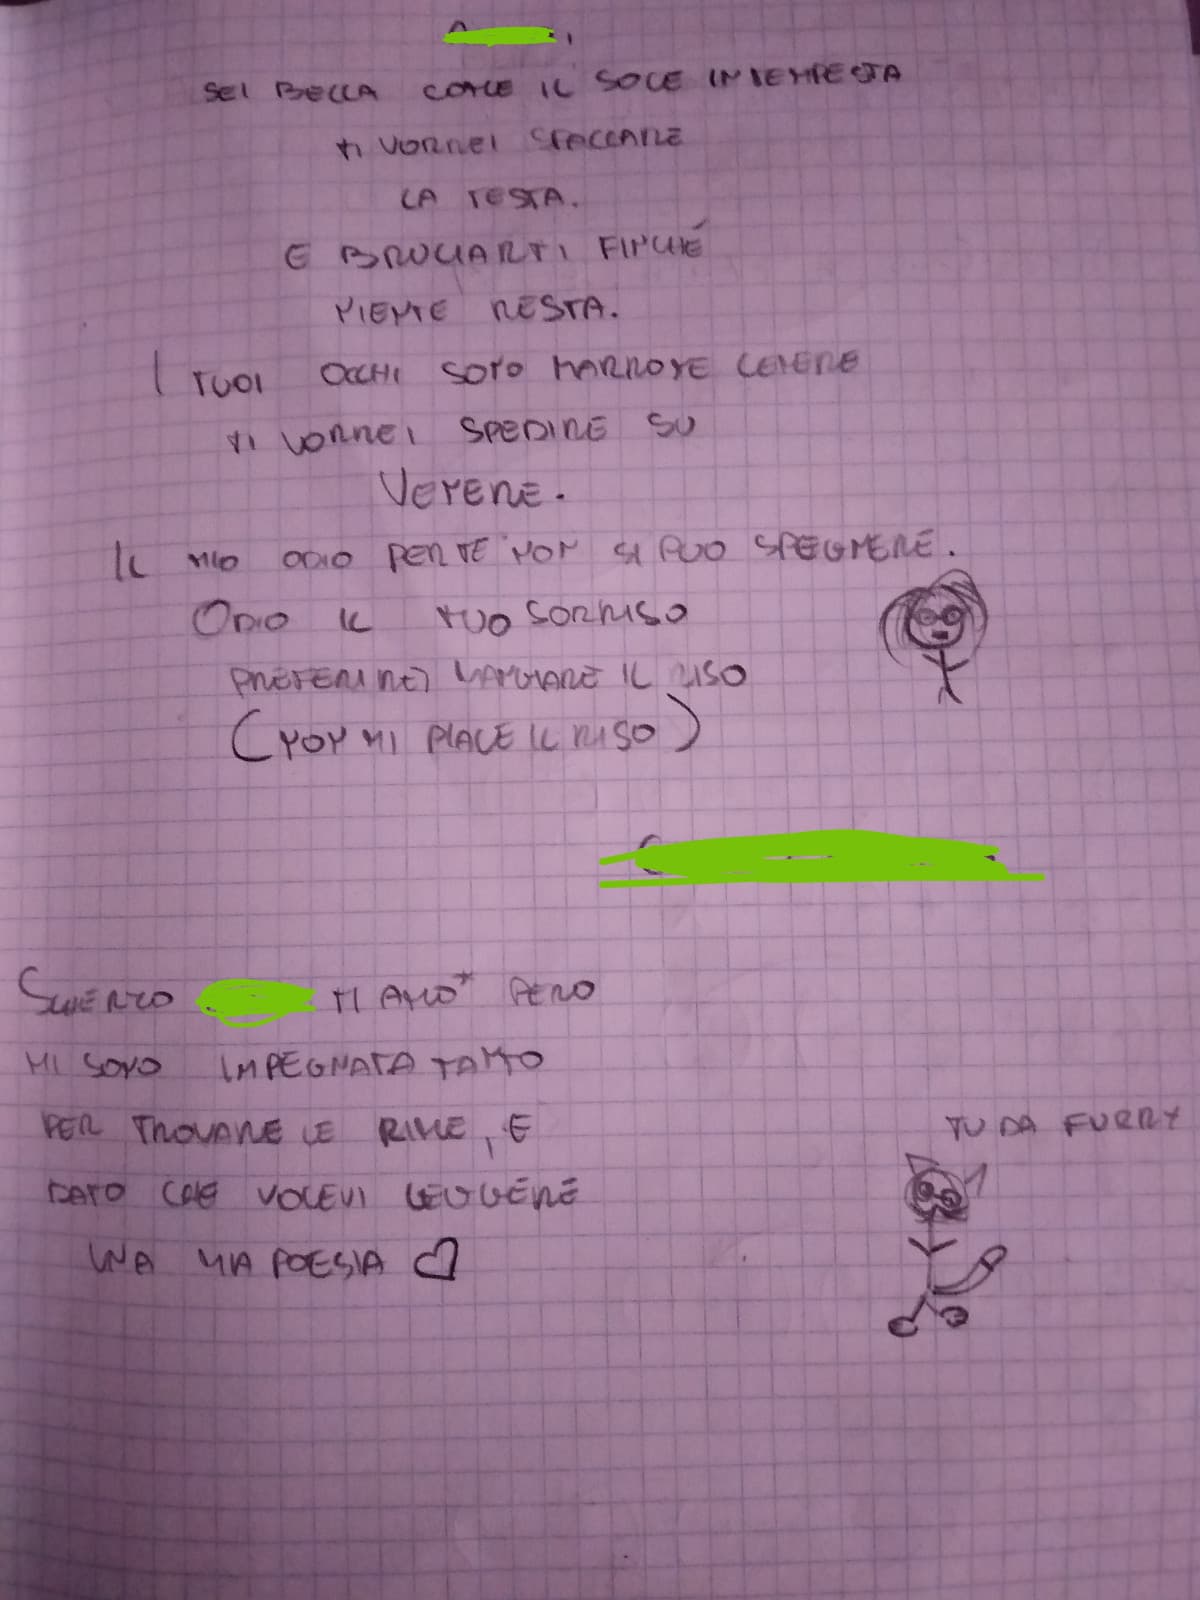 SEI BELLA COME IL SOLE IN TEMPESTA
TI VORREI SPACCARE
LA TESTA.
E BRUCIARTI FINCHÉ
NIENTE RESTA.
I TUOI OCCHI SONO MARRONE CENERE
TI VORREI SPEDIRE SU
VENERE.
IL MIO ODIO PER TE NON SI PUO SPEGNERE.
ODIO IL TUO SORRISO
PREFERIREI MANGIARE IL RISO
(NON MI PIACE IL RISO)
SCHERZO TI AMO* PERO
MI SONO IMPEGNATA TANTO
PER TROVARE LE RIME, E
TU DA FURRY
DATO CHE VOLEVI LEGGERE
UNA MIA POESIA ♡